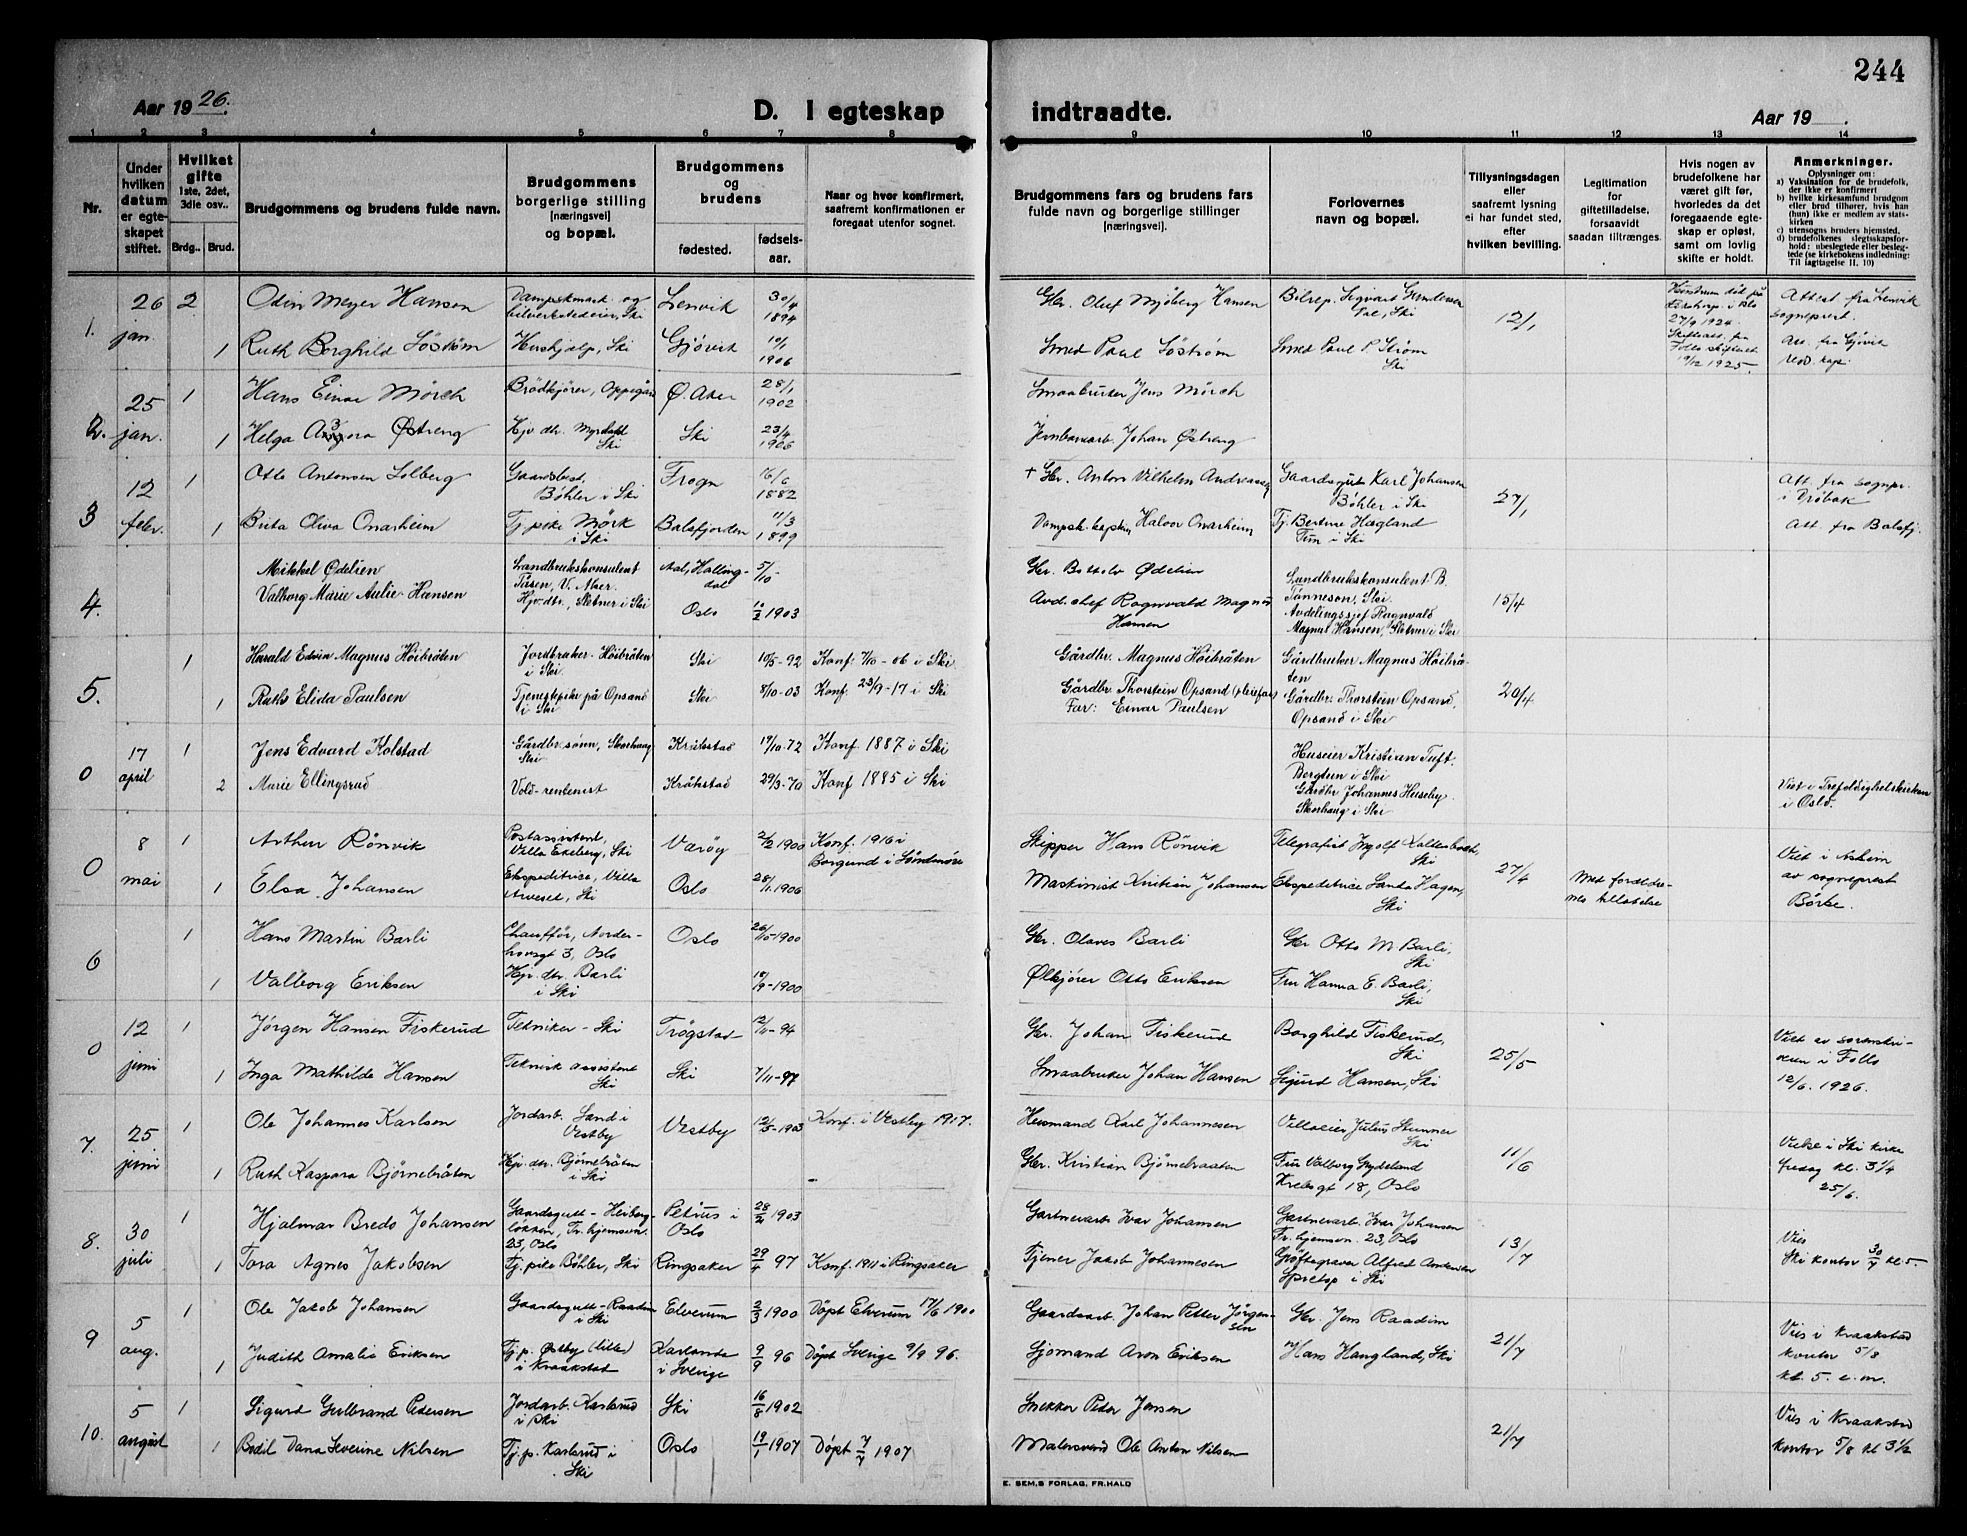 244
Aar 19 26.
D. I egteskap indtraadte.
Aar 19
1 2 3 4 5 6 7 8 9 10 11 12 13 14
Nr.
Under hvilken datum er egteskapet stiftet.
Hvilket gifte 1ste, 2det, 3die osv..
Brdg.. Brud.
Brudgommens og brudens fulde navn.
Brudgommens borgerlige stilling [næringsvei] og bopæl.
Brudgommens og brudens
fødested.
fødsels-aar.
Naar og hvor konfirmert, saafremt konfirmationen er foregaat utenfor sognet.
Brudgommens fars og brudens fars fulde navn og borgerlige stillinger [næringsvei].
Forlovernes navn og bopæl.
Tillysningsdagen eller saafremt lysning ei har fundet sted, efter hvilken bevilling.
Legitimation for giftetilladelse, forsaavidt saadan tiltrænges.
Hvis nogen av brudefolkene har været gift før, hvorledes da det foregaaende egteskap er opløst, samt om lovlig skifte er holdt.
Anmerkninger.
Oplysninger om:
a) Vaksination for de brudefolk, der ikke er konfirmert
b) hvilke kirkesamfund brudgom eller brud tilhører, hvis han (hun) ikke er medlem av statskirken
c) utensogns bruders hjemsted.
d) brudefolkenes slegtsskapsforhold: ubeslegtede eller beslegtede (se kirkebokens indledning: Til iagttagelse II. 10)
1. 26 jan. 2 Odin Meyer Hansen Lenvik 30/4 1894 Gbr. Oluf Mjøberg Hansen 12/1 Attest fra Lenvik sogneprest.
1 Ruth Borghild Söström Hushjælp, Ski Gjøvik 10/1 1906 Smed Paul Söstrøm Smed Paul P. Strøm Ski 27/9 1924. 19/12 1925. Att. fra Gjøvik
2. 25 jan. 1 Hans Einar Mörch Brödkjörer, Oppegård Ø. Aker 28/1 1902 Smaabruker Jens Mörch
1 Helga Østreng Hjv. dtr. Ski Ski 23/4 1906 Jernbanearb. Johan Østreng
3 12 febr. 1 Otto Antonsen Solberg Gaardsbest. Bøhler i Ski Frogn 16/6 1882 + Gbr. Anton Vilhelm Andreassen Gaardsgut Karl Johansen Bøhler i Ski 27/1 Att. fra sognepr. i Drøbak
1 Brita Oliva Onarheim Tj. pike Mörk i Ski Balsfjorden 11/3 1899 Dampsk. kaptein Halvor Onarheim Tj. Bertine Hagland Tun i Ski Att. fra Balsfj.
4. Mikkel Ødelien Landbrukskonsulent V. Aker. Aal, Hallingdal Gbr. Bottolv Ødelien Landbrukskonsulent B. Tönneson, Ski. 15/4
Valborg Marie Aulie Hansen Hjv. dtr., Sletner i Ski Oslo 12/2 1903 Avd. chef Ragnvald Magnus Hansen Avdelingssjef Ragnvald Magnus Hansen, Sletner i Ski
5. 1 Harald Edvin Magnus Höibråten Jordbruker - Höibråten i Ski Ski 10/5-92 Konf. 7/10-06 i Ski Gårdbr. Magnus Höibråten Gårdbruker Magnus Höibråten 20/4
1 Ruth Elida Paulsen Tjenestepike på Opsand i Ski Ski 8/10-03 Konf. 23/9-17 i Ski Gårdbr. Thorstein Opsand (pleiefar) Far: Einar Paulsen Gårdbr. Thorstein Opsand, Opsand i Ski
0 17 april 1 Jens Edvard Kolstad Gårdbr.sönn, Skorhaug Ski Kråkstad 19/10-72 Konf. 1887 i Ski Huseier Kristian Tuft. Bergtun i Ski
2 Marie Ellingsrud Vold-rentenist Kråkstad 29/3-70 Konf 1885 i Ski Gårdbr Johannes Huseby. Skorhaug i Ski Viet i Trefoldighetskirken i Oslo.
0 8 mai 1 Arthur Rönvik Postassistent, Villa Ekeberg, Ski Varöy 2/12 1900 Konf. 1916 i Borgund i Söndmöre Skipper Hans Rönvik Telegrafist Ingolf Kaltenborn, Ski 27/4 Viet i Askim av sogneprest Börke.
1 Elsa Johansen Ekspeditrice, Villa Ski Oslo 28/1 1906 Maskinist Kristian Johansen Ekspeditrice Hagen, Ski Med forældrenes tilladelse
6 1 Hans Martin Barli Chauffør, Norderhovsgt 3, Oslo Oslo 26/10-1900 Gbr. Olaves Barli Gbr Otto M. Barli, Ski
1 Valborg Eriksen Hjv. dtr. Barli i Ski 10/9-1900 Ølkjörer Otto Eriksen Fru Hanna E. Barli, Ski
0 12 juni 1 Jörgen Hansen Fiskerud Tekniker - Ski Trøgstad 12/11-94 Gbr. Johan Fiskerud Borghild Fiskerud, Ski 25/5 Viet av sorenskriveren i Follo 12/6. 1926.
1 Inga Mathilde Hansen Teknisk assistent Ski Ski 7/11-97 Smaabruker Johan Hansen Sigurd Hansen, Ski
7. 25 juni 1 Ole Johannes Karlsen Jordarb. Sand i Vestby Vestby 12/5-1903 Konf. i Vestby 1917. Husmand Karl Johannesen Villaeier Julius Stunner Ski 11/6 Vielse i Ski kirke fredag kl. 3 1/4 25/6.
1 Ruth Kaspara Björnebråten Hjv. dtr. Björnebråten i Ski Gbr. Kristian Björnebraaten Fru Valborg Gydeland Krebsgt 18, Oslo
8. 30 juli 1 Hjalmar Bredo Johansen Gaardsgutt - Heibergløkken, Tr. hjemsvn. 23, Oslo Petrus i Oslo 28/2 1903 Gartnerarb. Ivar Johansen Gartnerarb. Ivar Johansen Tr. hjemsvn. 23, Oslo 13/7 Vies Ski kontor 30/7 kl. 5.
1 Tora Agnes Jakobsen Tj. pike Böhler, Ski Ringsaker 29/4 97 Konf. 1911 i Ringsaker Tjener Jakob Johannesen Grøftegraver Alfred i Ski
9 5 aug. 1 Ole Jakob Johansen Gaardsgutt - Raadim i Ski Elverum 2/3 1900 Döpt Elverum 17/6 1900 Gaardsarb. Johan Petter Jörgensen Gbr. Jens Raadim 21/7 Vies i Kraakstad kontor 5/8 kl. 5. e. m.
1 Judith Amalie Eriksen Tj. p. Østby (lille) i Kraakstad Karlanda i Sverige 9/9 96 Döpt Sverige 9/9 96. Sjømand Aron Eriksen Hans Haugland, Ski
10. 5 august 1 Sigurd Gulbrand Pedersen Jordarb. Karlsrud i Ski Ski 16/8 1902 Snekker Peder Jensen 21/7 Vies i Kraakstad kontor 5/8 kl 3 1/2
1 Bodil Dana Severine Nilsen Tj. p. Karlsrud i Ski Oslo 19/1 1907 Döpt 7/7 1907 Malersvend Ole Anton Nilsen
E. SEM,S FORLAG, FR.HALD